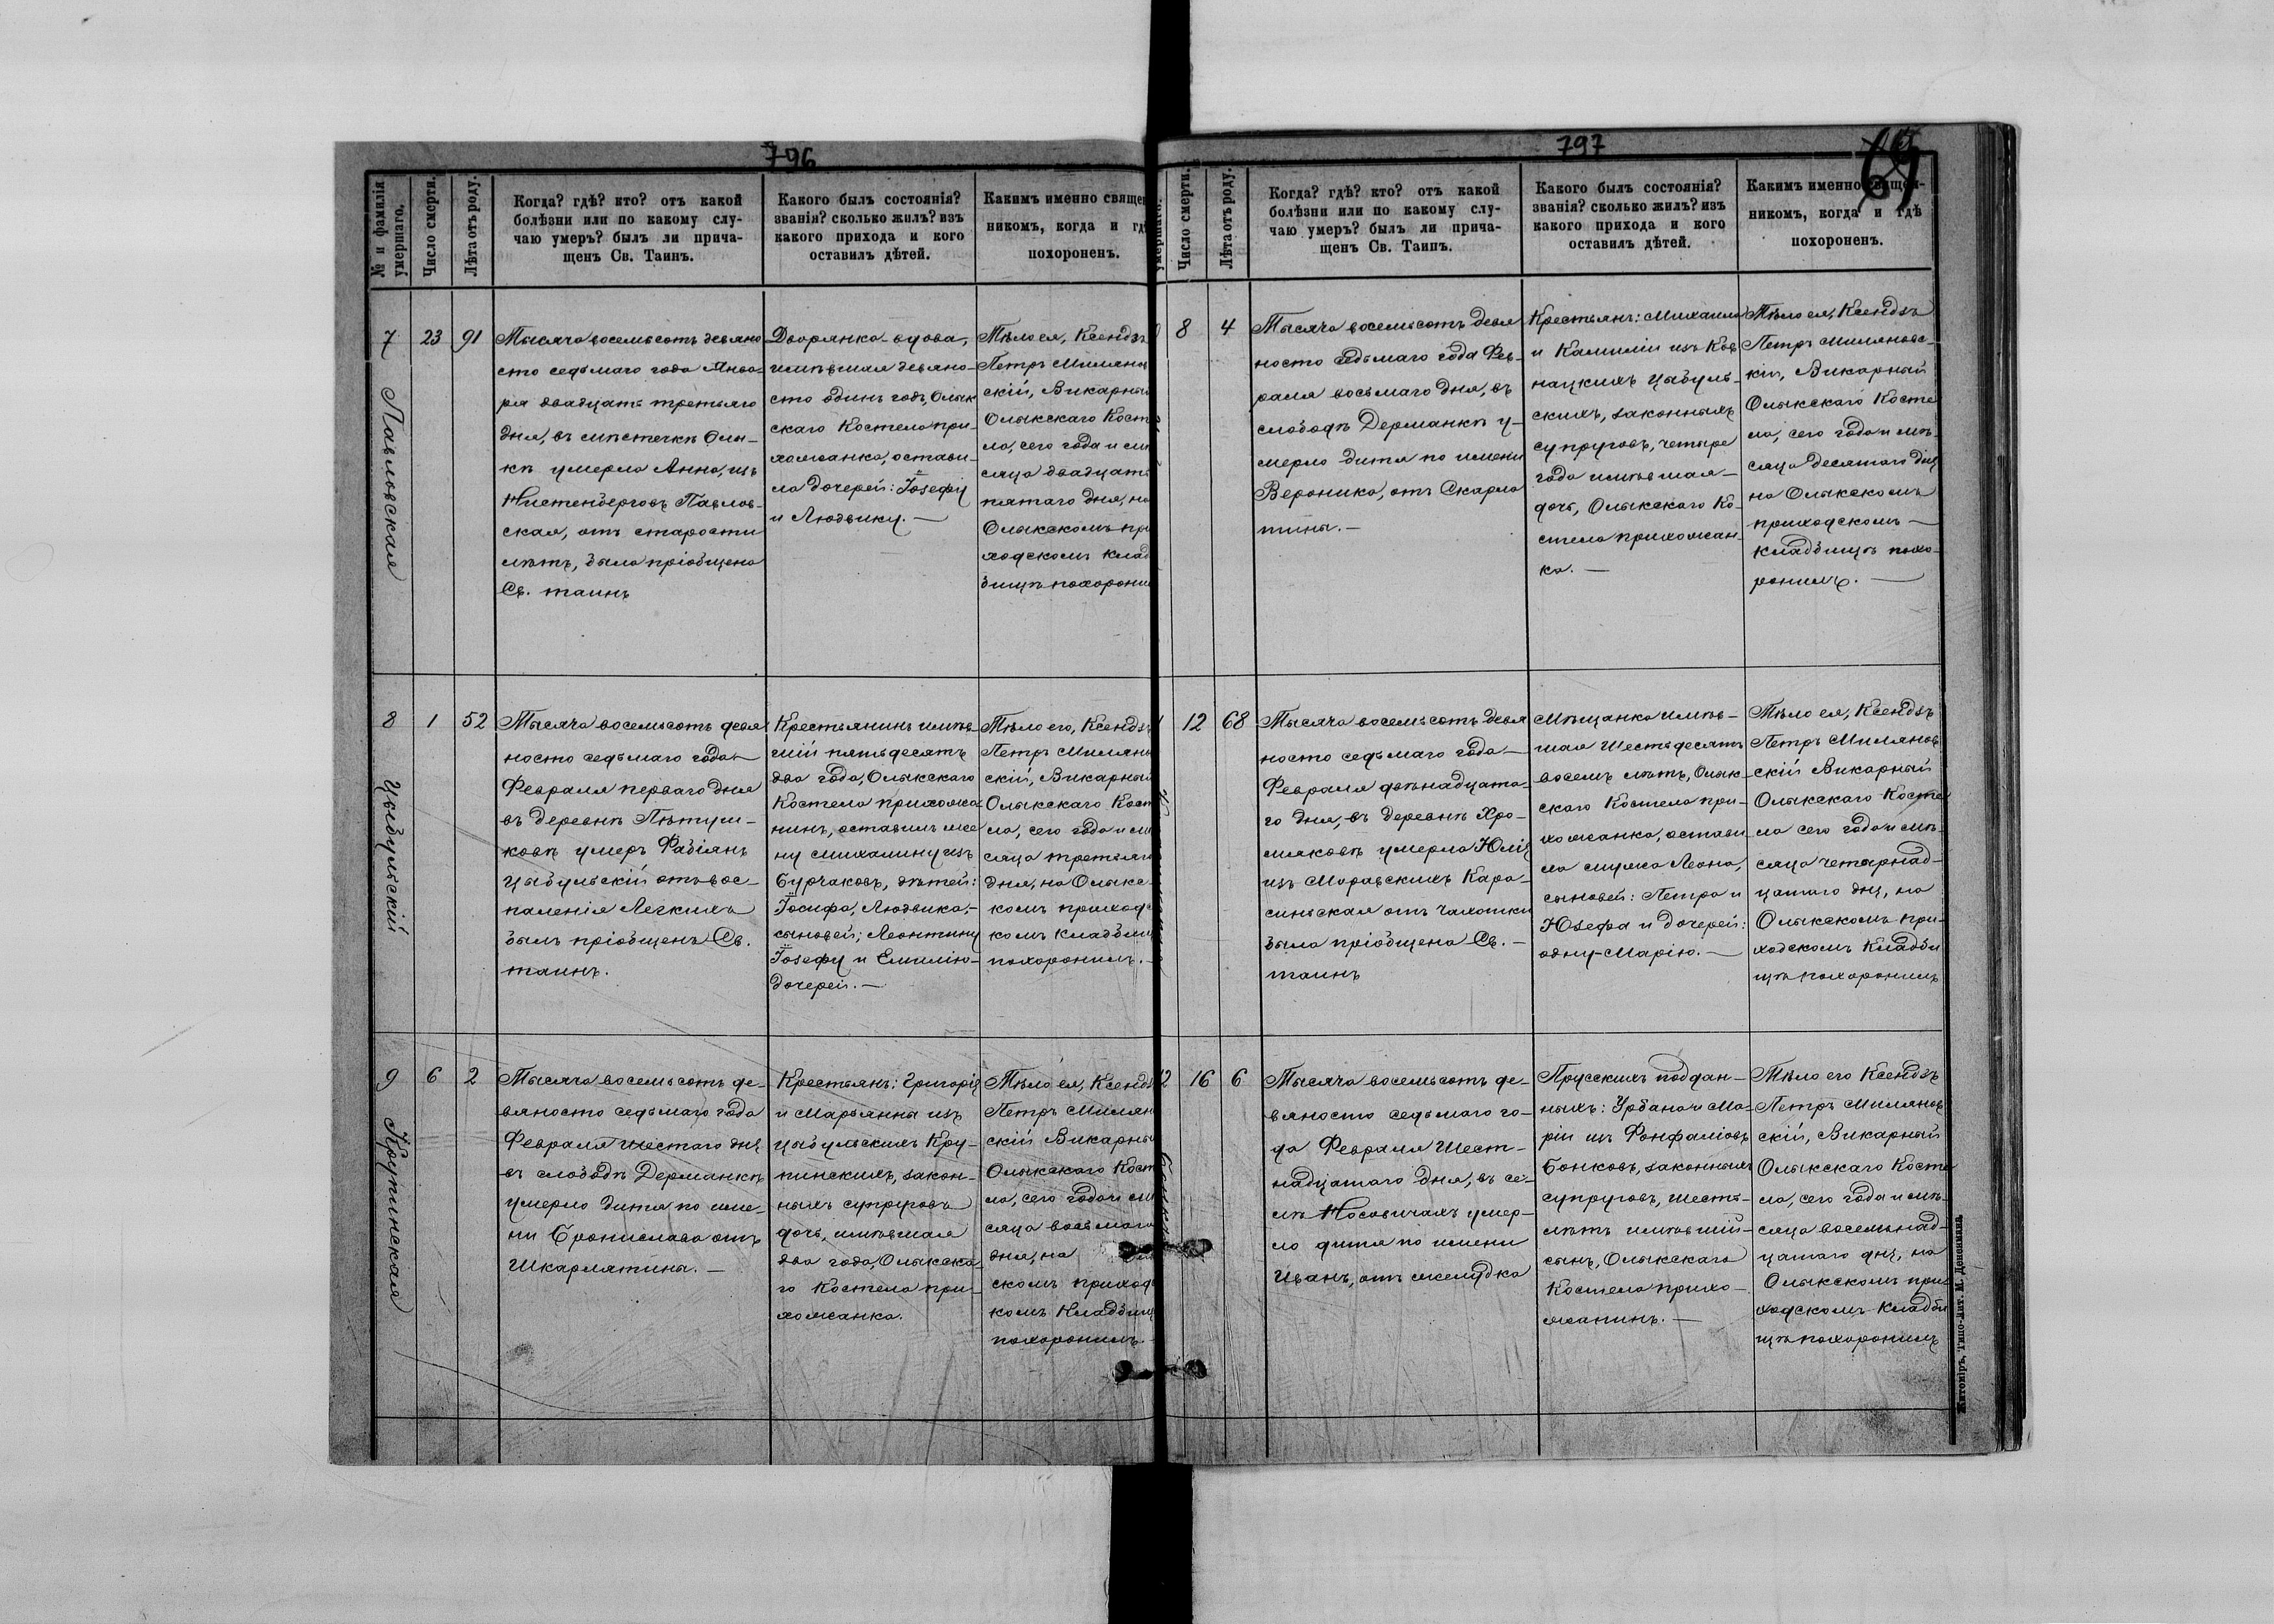 796
№ и фамилія умершаго.
Число смерти.
Лѣта отъ роду.
Когда? гдѣ? кто? отъ какой
болѣзни или по какому слу-
чаю умеръ? былъ ли прича-
щенъ Св. Таинъ.
Какого былъ состоянія?
званія? сколько жилъ? изъ
какого прихода и кого
оставилъ дѣтей.
Какимъ именно свящe
никомъ, когда и гд
похороненъ.
7
Павловская
23
91
Тысяча восемьсотъ девяно
сто седьмаго года Янва-
ря двадцать третьяго
дня, въ мѣстечкѣ Олы-
кѣ умерла Анна, изъ
Павлов-
ская, отъ старости
лѣтъ, была пріобщена
Св. таинъ
Дворянка-вдова,
имѣвшая девяно-
сто одинъ годъ, Олык
скаго Костела при-
хожанка, остави-
ла дочерей: Іозефу
и Людвику. —
Тѣло ея, Ксендзъ
Петръ Милянов
скій, Викарный
Олыкскаго Косте
ла, сего года и мѣ
сяца двадцать
пятаго дня, на
Олыкскомъ при
ходскомъ клад
бищѣ похорони
8
Цыбульскій
1
52
Тысяча восемьсотъ девя
носто седьмаго года —
Февраля перваго дня
въ деревнѣ Пѣтуш-
ковѣ умеръ Фабіянъ
Цыбульскій отъ вос-
паленія Легкихъ
былъ пріобщенъ Св.
таинъ.
Крестьянинъ имѣв-
шій пятьдесятъ
два года, Олыкскаго
Костела прихожа-
нинъ, оставилъ же
ну Михалину изъ
Бурчаковъ, дѣтей:
Іосифа, Людвика, —
сыновей; Леонтину
Іозефу и Емилію-
дочерей. —
Тѣло его, Ксендзъ
Петръ Миляно
скій, Викарный
Олыкскаго Кост
ла, сего года и мѣ
сяца третьяго
дня, на Олыкс-
комъ приходс
комъ кладбищ
похоронилъ. —
9
Крупинская
6
2
Тысяча восемьсотъ де-
вяносто седьмаго года
Февраля шестаго дня
въ слободѣ Дерманкѣ
умерло дитя по име-
ни Бронислава отъ
Шкарлятины. —
Крестьянъ: Григорія
и Марьянны изъ
Цыбульскихъ Кру-
пинскихъ, закон-
ныхъ супруговъ
дочь, имѣвшая
два года, Олыкска
го Костела при-
хожанка.
Тѣло ея, Ксендз
Петръ Милян
скій Викарны
Олыкскаго Кост
ла, сего года и мѣ
сяца восьмаго
дня, на
скомъ приход
комъ Кладбищ
похоронилъ. —
797
69
умершаго.
Число смерти.
Лѣта отъ роду.
Когда? гдѣ? кто? отъ какой
болѣзни или по какому слу-
чаю умеръ? былъ ли прича-
щенъ Св. Таинъ.
Какого былъ состоянія?
званія? сколько жилъ? изъ
какого прихода и кого
оставилъ дѣтей.
Какимъ именно священ-
никомъ, когда и гдѣ
похороненъ.
8
4
Тысяча восемьсотъ девя
носто седьмаго года Фев-
раля восьмаго дня, въ
слободѣ Дерманкѣ у-
мерло дитя по имени
Вероника, отъ Скарла
тины. —
Крестьянъ: Михаила
и Камиліи изъ Ков
нацкихъ Цыбуль-
скихъ, законныхъ
супруговъ, четыре
года имѣвшая —
дочь, Олыкскаго Ко-
стела прихожан-
ка. —
Тѣло ея, Ксендзъ
Петръ Миляновс-
кій, Викарный
Олыкскаго Косте
ла, сего года и мѣ-
сяца десятаго дня
на Олыкскомъ
приходскомъ —
кладбищѣ похо-
ронилъ. —
12
68
Тысяча восемьсотъ девя
носто седьмаго года —
Февраля двѣнадцата-
го дня, въ деревнѣ Хро-
мяковѣ умерла Юлія
изъ Моравскихъ Кара-
синьская отъ Чахотки
была пріобщена Св. —
таинъ
Мѣщанка имѣв-
шая Шестьдесятъ
восемь лѣтъ, Олык-
скаго Костела при-
хожанка, остави
ла мужа Леона,
сыновей: Петра и
Юзефа и дочерей:
одну-Марію. —
Тѣло ея, Ксендзъ
Петръ Миляновъ
скій Викарный
Олыкскаго Косте
ла сего года и мѣ-
сяца четырнад-
цатаго дня, на
Олыкскомъ при-
ходскомъ Кладби
щѣ похоронилъ
2
16
6
Тысяча восемьсотъ де-
вяносто седьмаго го-
да Февраля Шест-
надцатаго дня, въ се-
лѣ Носовичахъ умер-
ло дитя по имени
Иванъ, отъ желудка
Прусскихъ поддан-
ныхъ: Урбана и Ма-
ріи изъ Фонфаліовъ
Бонковъ, законныхъ
супруговъ, шесть-
лѣтъ имѣвшій-
сынъ, Олыкскаго
Костела прихо-
жанинъ. —
Тѣло его Ксендзъ
Петръ Миляновъ
скій, Викарный
Олыкскаго Косте
ла, сего года и мѣ-
сяца восемьнад-
цатаго дня, на
Олыкскомъ при-
ходскомъ Кладби
щѣ похоронилъ
Житоміръ, Типо-Лит. М. Дененмана.